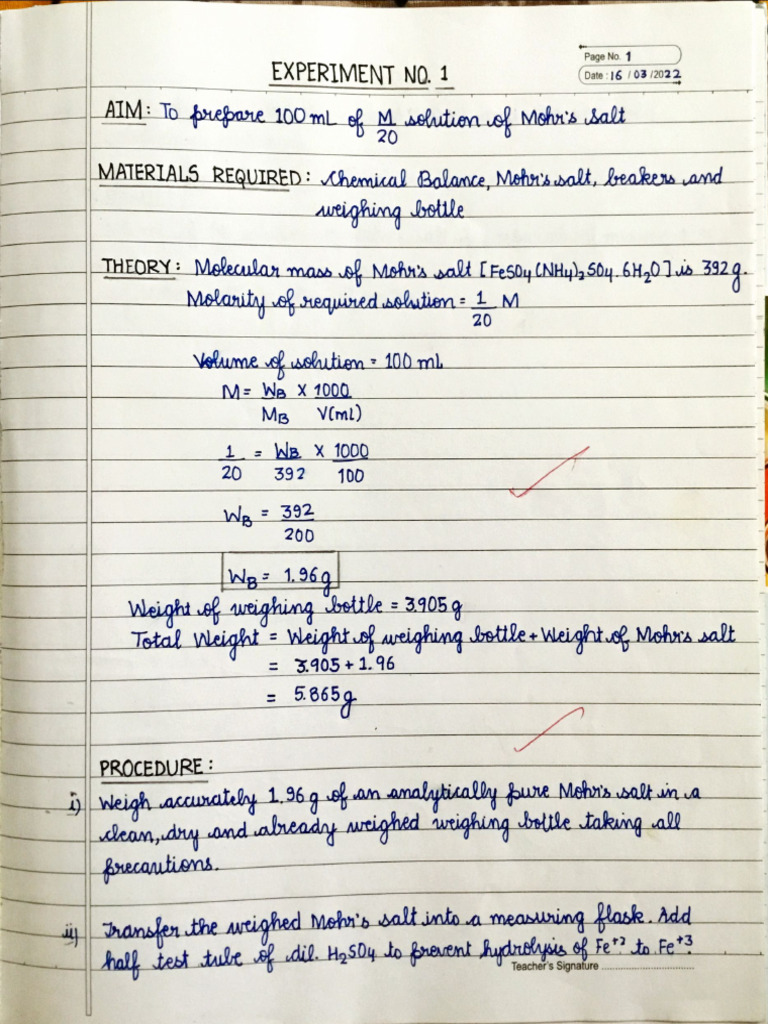 Page No. 1
EXPERIMENT NO. 1
Date: 16 / 03 /2022
AIM: To prepare 100 mL of M/20 solution of Mohr's Salt
MATERIALS REQUIRED: Chemical Balance, Mohr's salt, beakers and
weighing bottle
THEORY: Molecular mass of Mohr's salt [FeSO4(NH4)2SO4.6H2O] is 392g.
Molarity of required solution = 1/20 M
Volume of solution = 100 mL
M = WB/MB X 1000/V(mL)
1/20 = WB/392 X 1000/100
WB = 392/200
WB = 1.96g
Weight of weighing bottle = 3.905g
Total Weight = Weight of weighing bottle + Weight of Mohr's salt
= 3.905 + 1.96
= 5.865g
PROCEDURE:
i) Weigh accurately 1.96 g of an analytically pure Mohr's salt in a
clean, dry and already weighed weighing bottle taking all
precautions.
ii) Transfer the weighed Mohr's salt into a measuring flask. Add
half test tube of dil. H2SO4 to prevent hydrolysis of Fe+2 to Fe+3.
Teacher's Signature ..............................